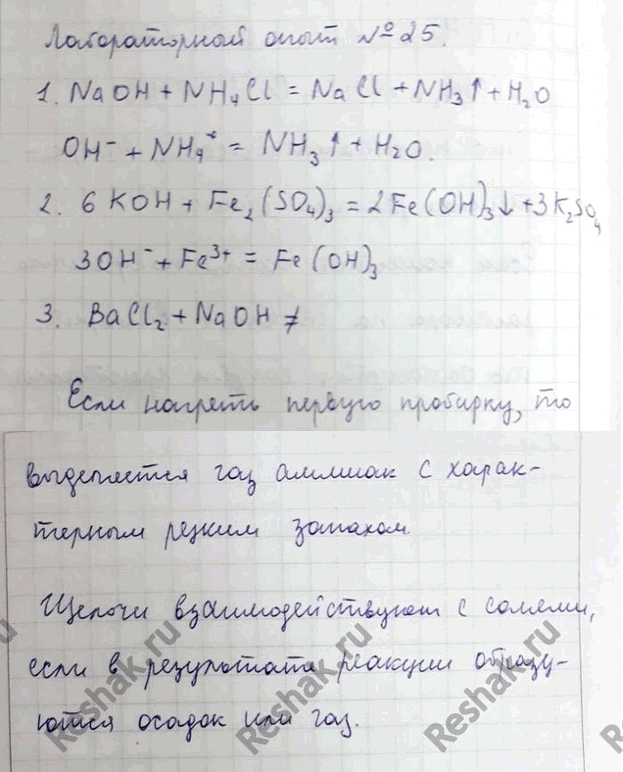 Лабораторный опыт №25.
1. NaOH + NH₄Cl = NaCl + NH₃↑ + H₂O
OH⁻ + NH₄⁺ = NH₃↑ + H₂O.
2. 6KOH + Fe₂(SO₄)₃ = 2Fe(OH)₃↓ + 3K₂SO₄
3OH⁻ + Fe³⁺ = Fe(OH)₃
3. BaCl₂ + NaOH ≠
Если нагреть первую пробирку, то
выделяется газ аммиак с харак-
терным резким запахом.
Щелочи взаимодействуют с солями,
если в результате реакции образу-
ются осадок или газ.
Reshak.ru
Reshak.ru
Reshak.ru